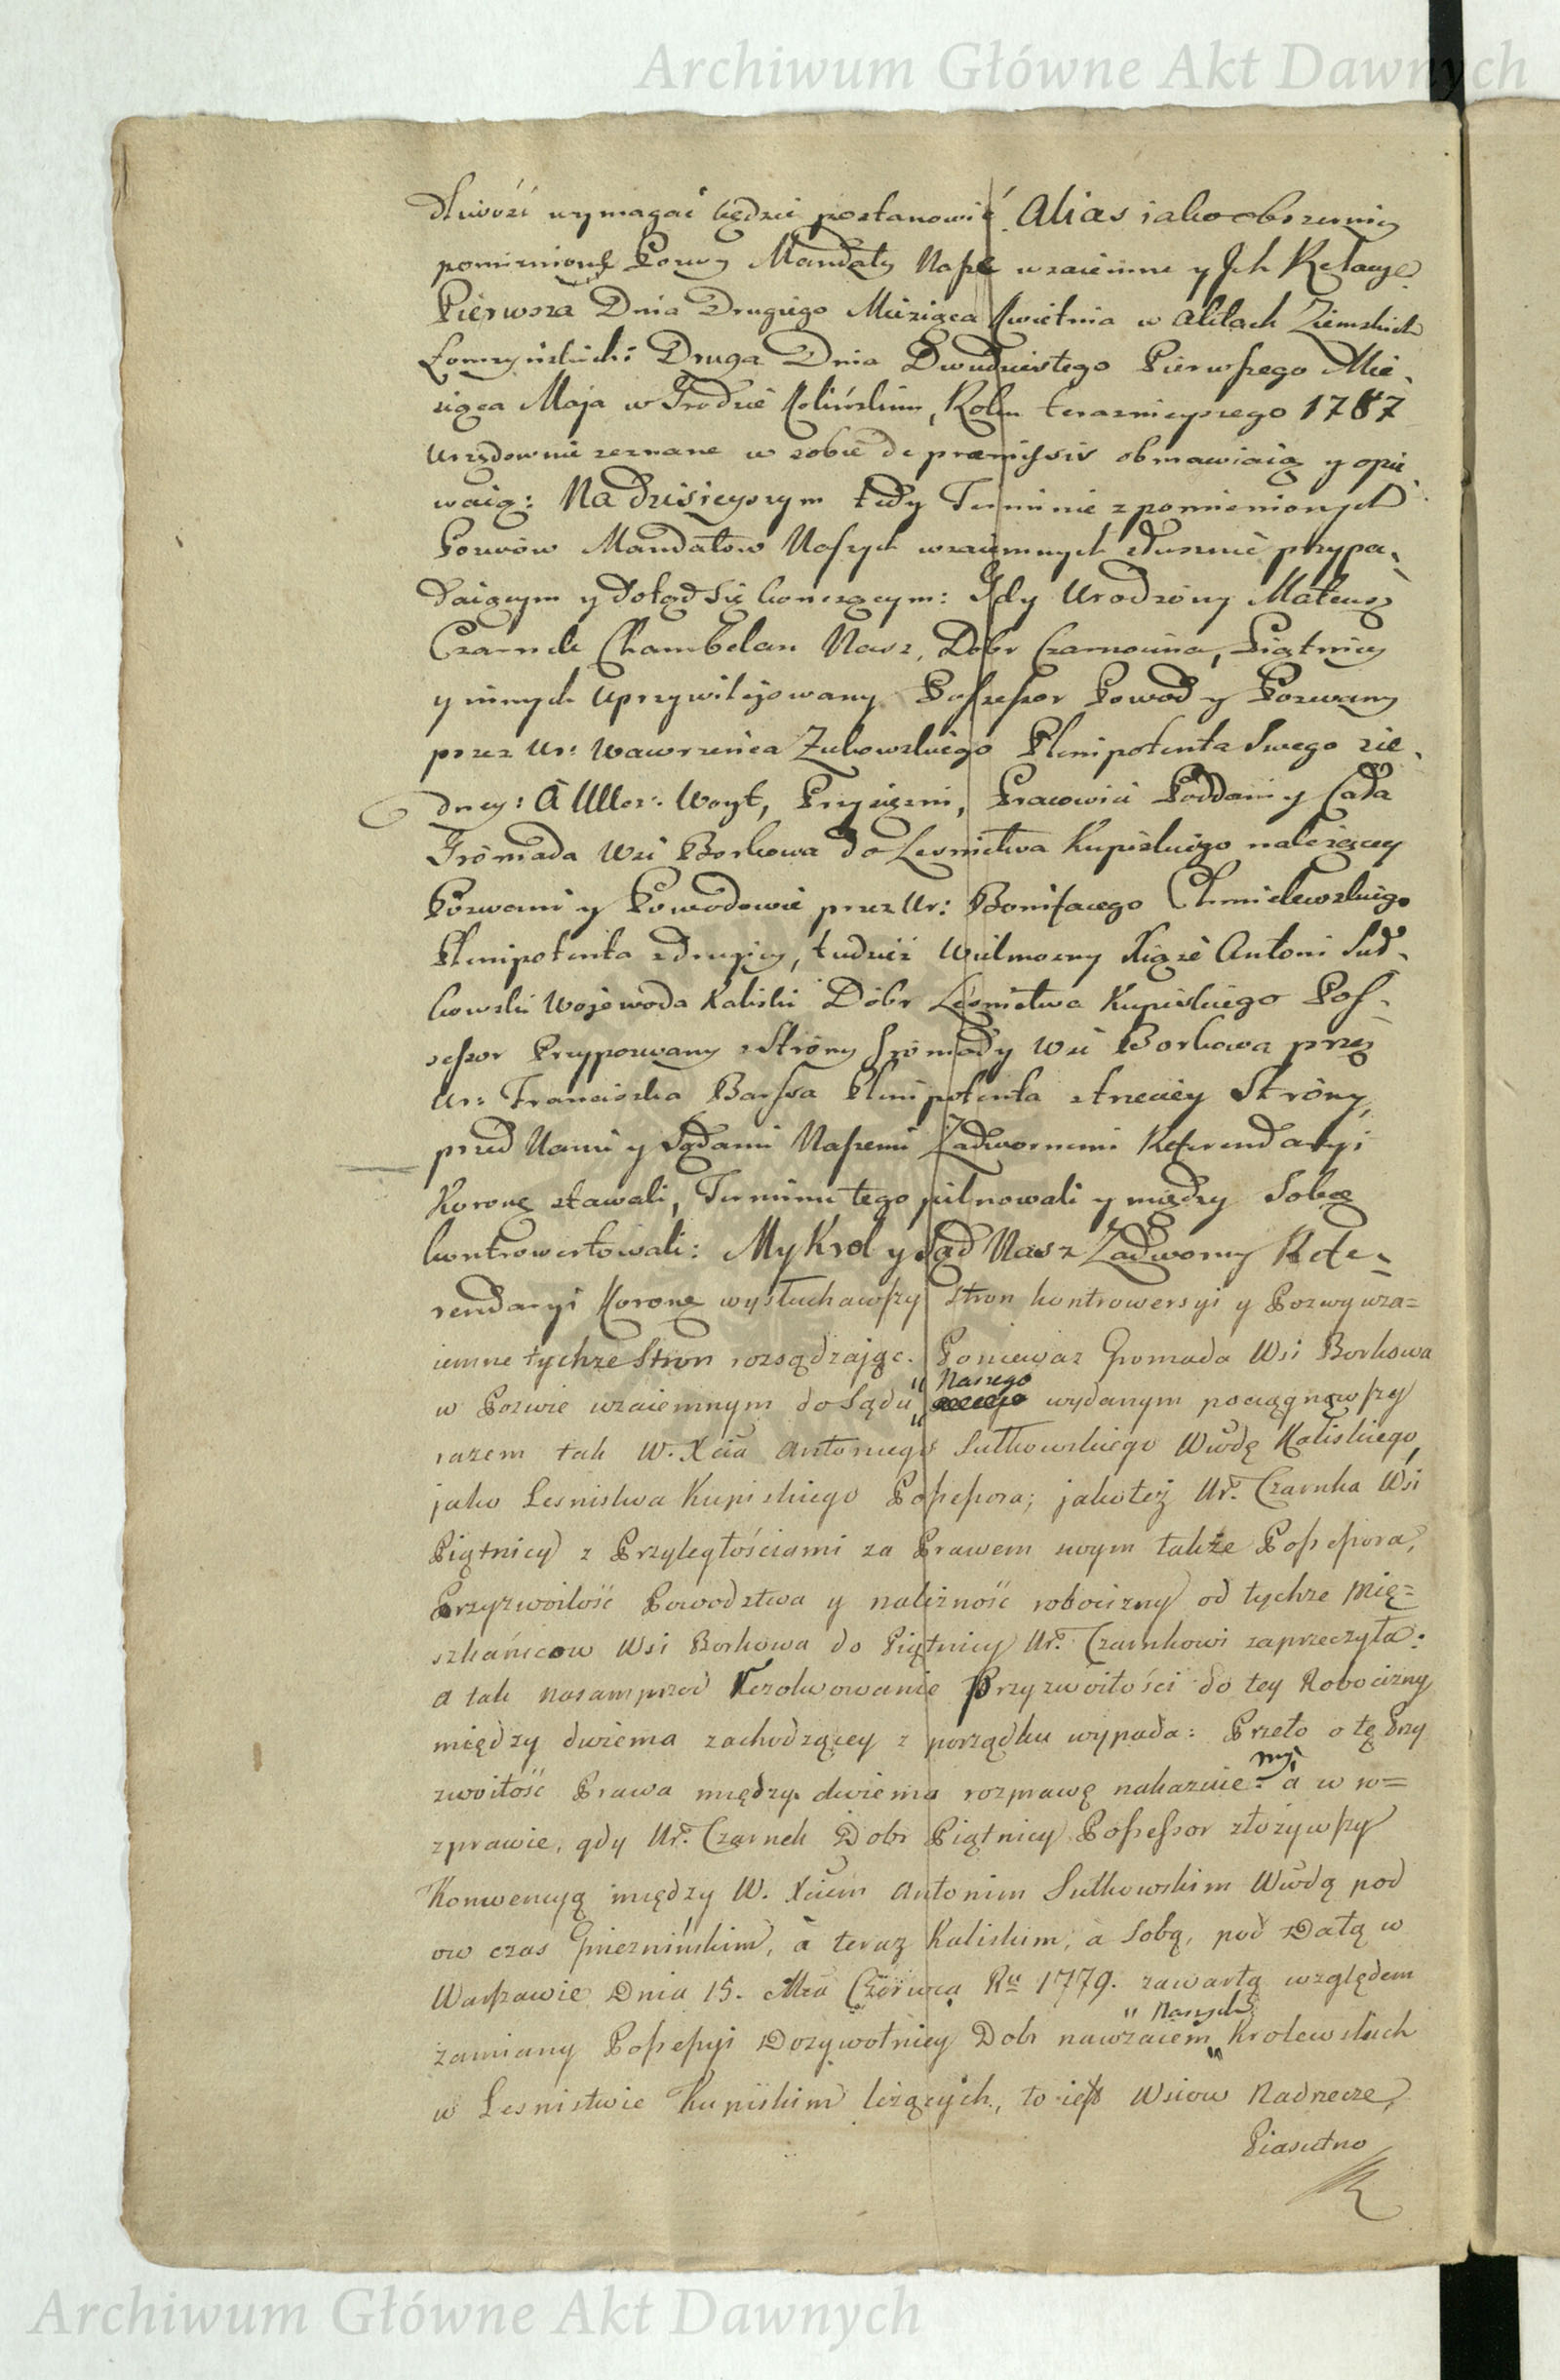 Archiwum Główne Akt Dawnych
dliwość wymagać będzie postanowić. Alias iako obszerniey
pomienione Pozwy Mandaty Nasze wzaiemne y Ich Relacye
Pierwsza Dnia Drugiego Miesiąca Kwietnia w Aktach Ziemskich
Łomżyńskich: Druga Dnia Dwudziestego Pierwszego Mie-
siąca Maja w Grodzie Kolińskim, Roku teraznieyszego 1787
urzędownie zeznane w sobie de praemissis obmawiaią y opie
waią: Na dzisieyszym tedy Terminie z pomienionych
Pozwów Mandatow Naszych wzaiemnych słusznie przypa-
daiącym y dotąd się konczącym: Gdy Urodzony Mateusz
Czarnek Chambelan Nasz, Dóbr Czarnocina, Piątnicy
y innych uprzywilejowany Possessor Powod y Pozwany
przez Ur: Wawrzeńca Zukowskiego Plenipotenta Swego z ie-
dney: A Woyt, Przysiężni, Pracowici Poddani y Cała
Gromada Wsi Borkowa do Lesnictwa Kupiskiego należącey
Pozwani y Powodowie przez Ur: Bonifacego Chmielewskiego
Plenipotenta z drugiey, tudzież Wielmożny Xiąże Antoni Suł-
kowski Wojewoda Kaliski Dóbr Leśnictwa Kupiskiego Pos-
sessor Przypozwany z Strony Gromady Wsi Borkowa przez
Ur: Franciszka Barssa Plenipotenta z trzeciey Strony,
przed Nami y Sądami Naszemi Zadwornemi Referendaryi
Koronę stawali, Terminu tego pilnowali y między Sobą
kontrowertowali: My Krol y Sąd Nasz Zadworny Refe-
rendaryi Koronę wysłuchawszy Stron kontrowersyi y Pozwy wza=
iemne tychże Stron rozsądzając. Ponieważ Gromada Wsi Borkowa
" Naszego
w Pozwie wzaiemnym do Sądu " wydanym pociągnąwszy
razem tak W. Xcia Antoniego Sułkowskiego Wwdę Kaliskiego,
jako Lesnistwa Kupiskiego Possessora; jakoteż Ur. Czarnka Wsi
Piątnicy z Przyległościami za Prawem swym także Possessora,
Przyzwoitość Powodztwa y należność robocizny od tychże Mię=
szkańcow Wsi Borkowa do Piątnicy Ur. Czarnkowi zaprzeczyła:
a tak nasamprzód Rezolwowanie Przyzwóitości do tey Robocizny
między dwiema zachodzącey z porządku wypada: Przeto o tę Przy
zwoitość Prawa między dwiema rozprawę nakazuie: a w ro=
zprawie, gdy Ur. Czarnek Dobr Piątnicy Possessor złożywszy
Konwencyą między W. Xciem Antonim Sułkowskim Wwdą pod
ow czas Gniezninskim, à teraz Kaliskim, a Sobą, pod Datą w
Warszawie Dnia 15. Mca Czerwca Ru 1779. zawartą względem
" Naszych
zamiany Possessyi Dozywotniey Dobr nawzaiem " Krolewskich
w Lesnistwie Kupiskim leżących, to iest Wsiow Nadrzecze,
Piasutno
Archiwum Główne Akt Dawnych